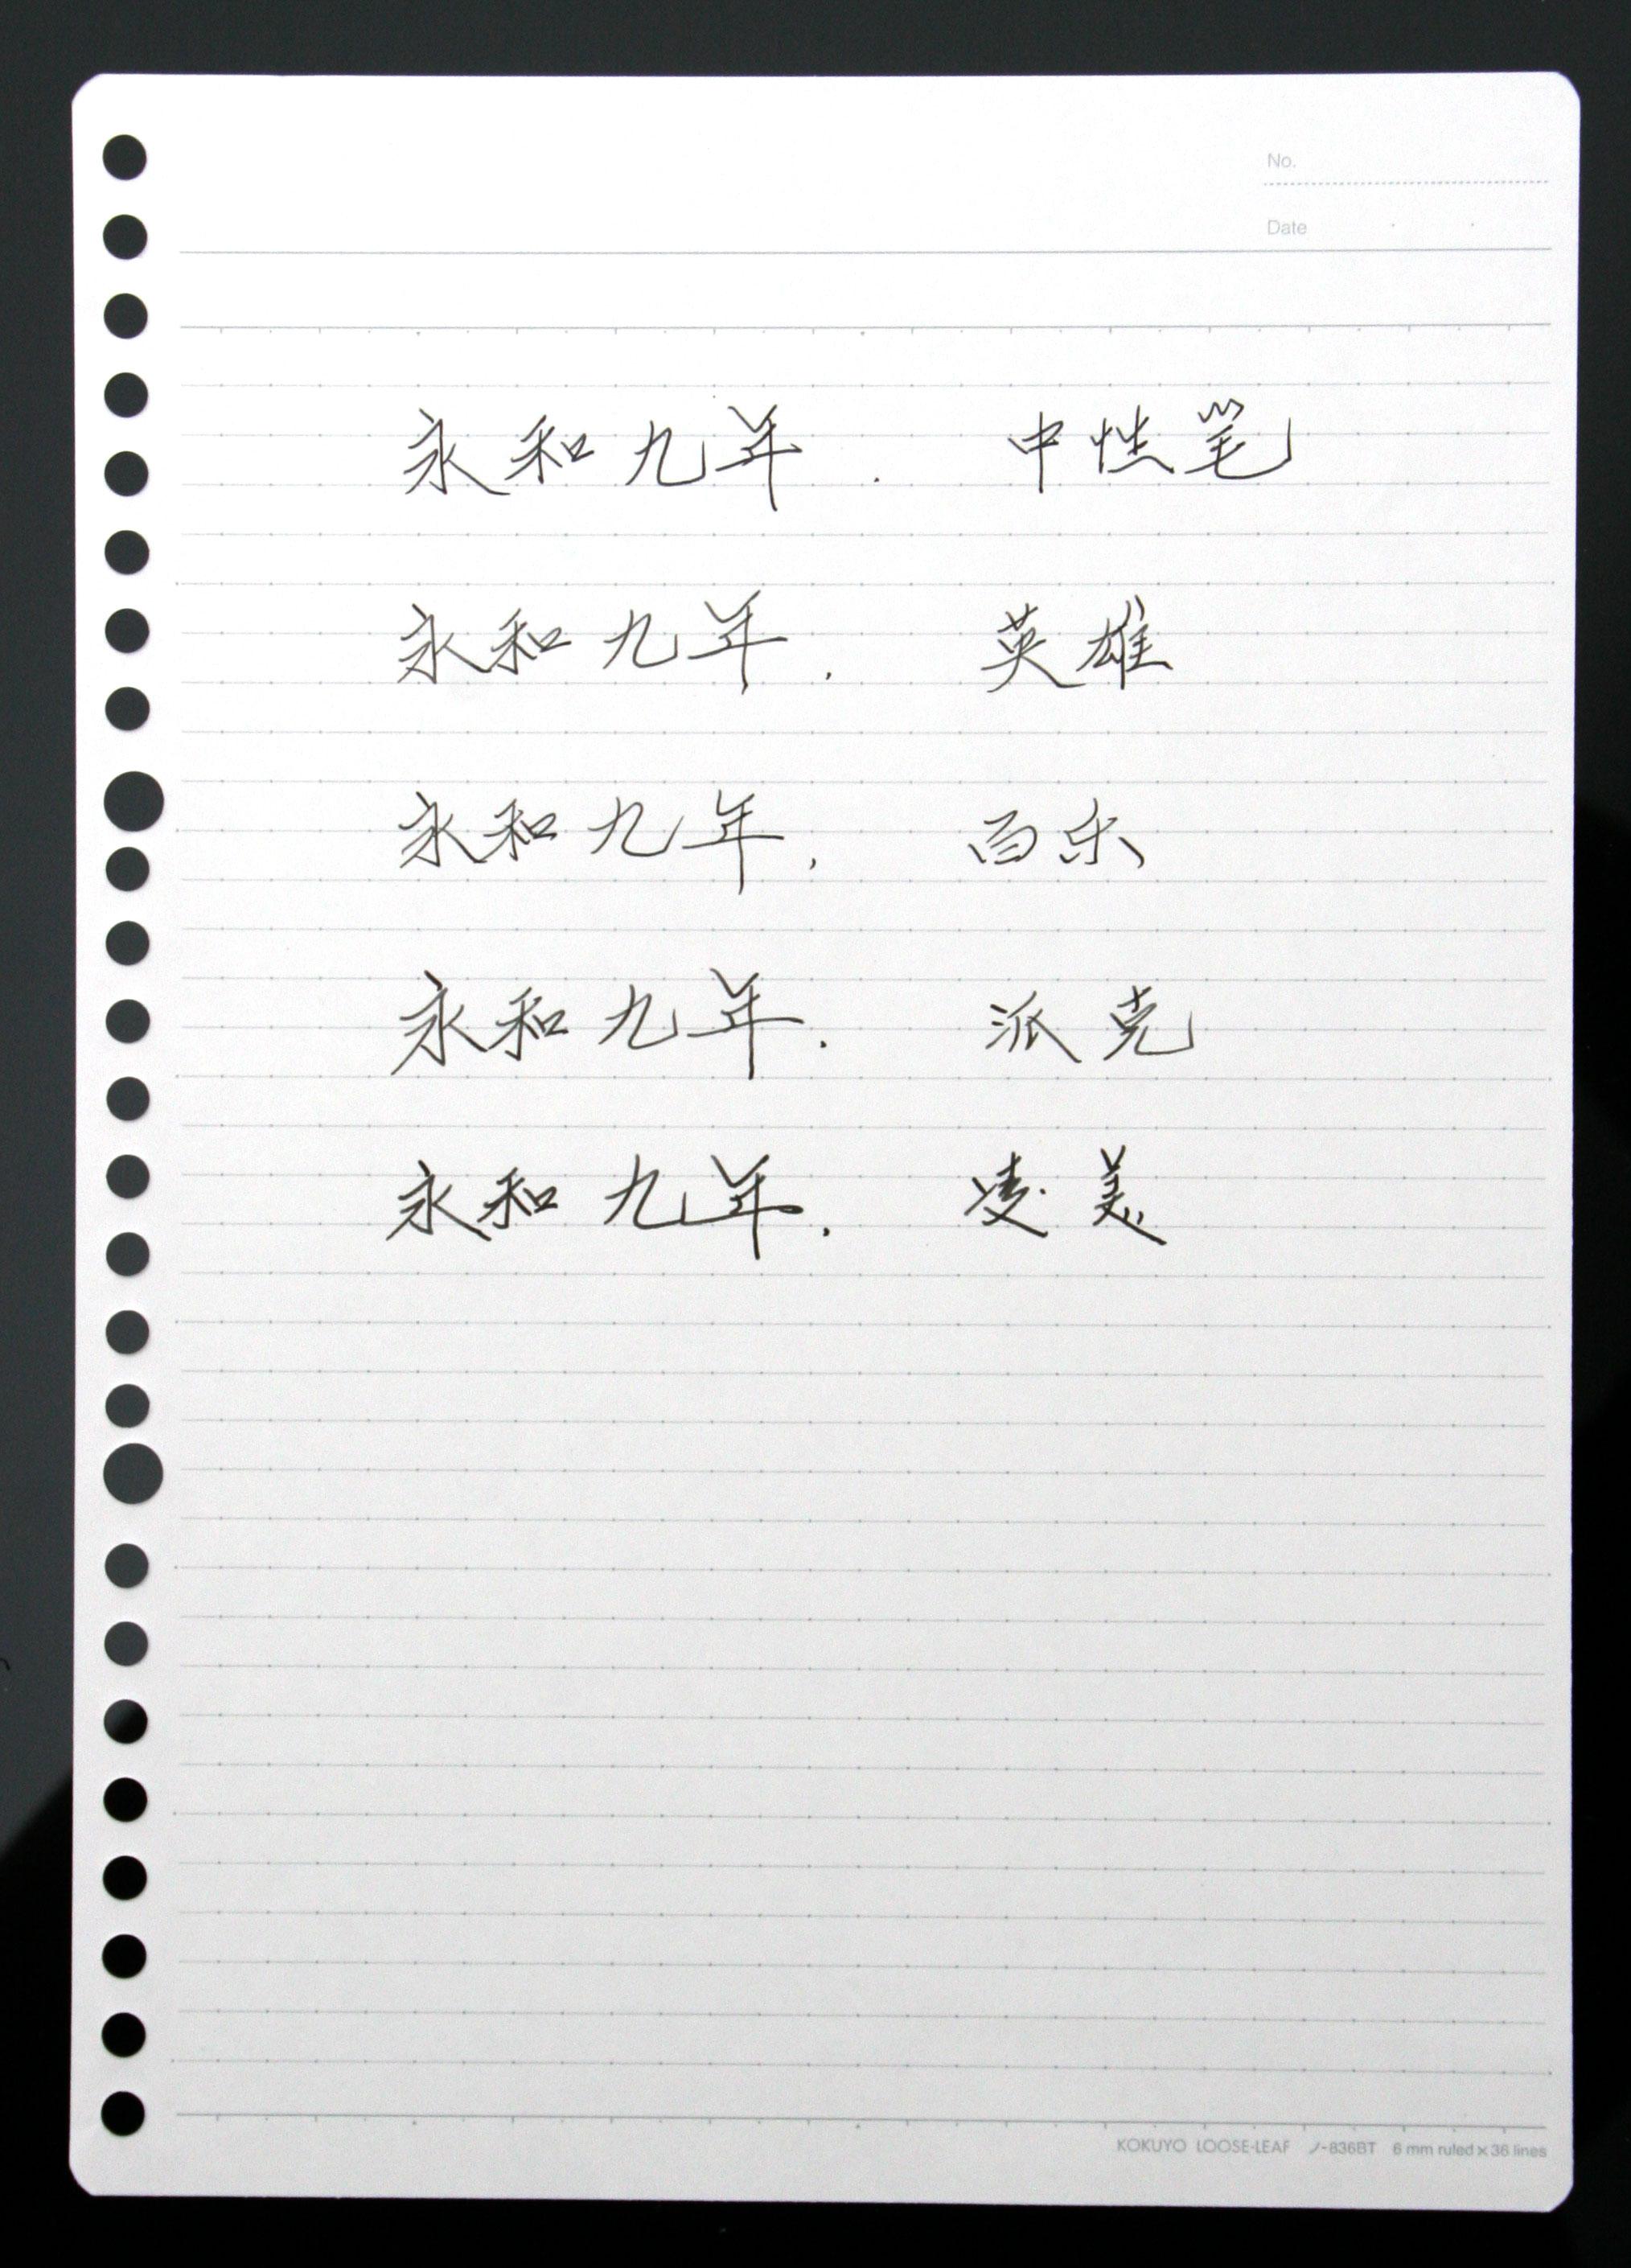 No.
Date
永和九年. 中性笔
永和九年. 英雄
永和九年. 百乐
永和九年. 派克
永和九年. 凌美
KOKUYO LOOSE-LEAF ノ-836BT 6 mm ruled × 36 lines